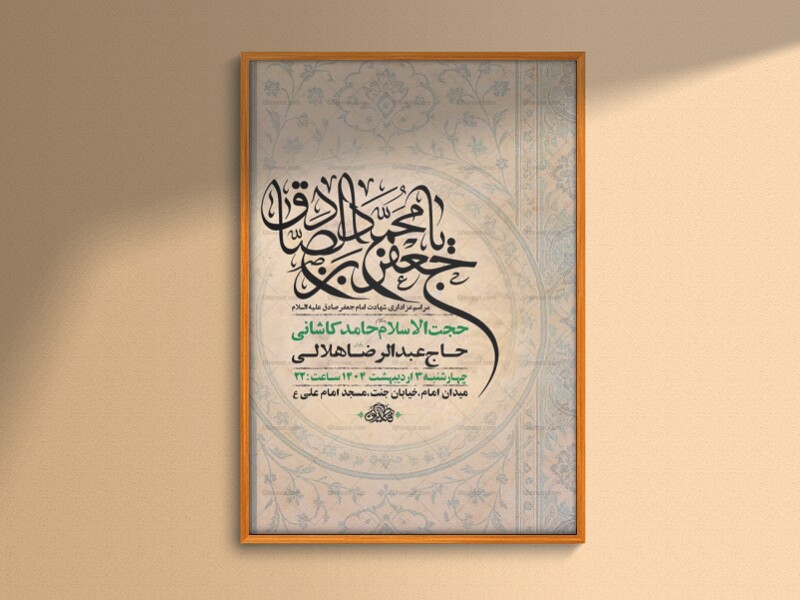 یا جعفر بن محمد الصادق
مراسم عزاداری شهادت امام جعفر صادق علیه السلام
حجت الاسلام حامد کاشانی
حاج عبدالرضا هلالی
چهارشنبه ۳ اردیبهشت ۱۴۰۴ ساعت: ۲۲
میدان امام، خیابان جنت، مسجد امام علی ع